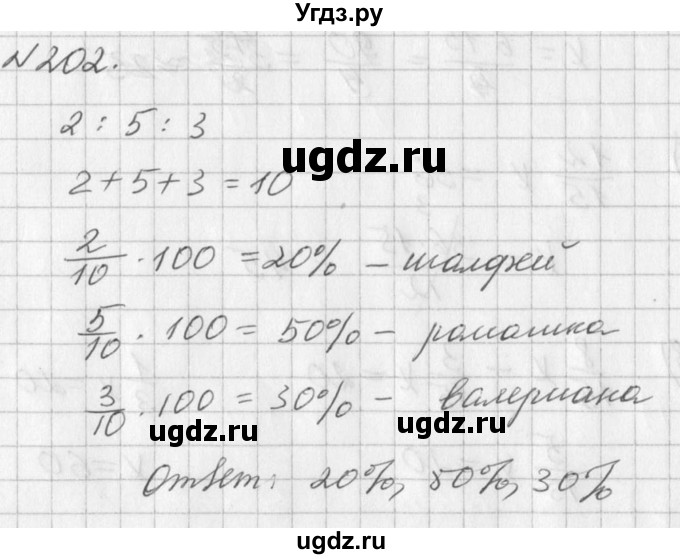 Угдз.ру
№202.
2 : 5 : 3
ugdz.ru
2+5+3=10
2/10 · 100 = 20% – шалфей
5/10 · 100 = 50% – ромашка
3/10 · 100 = 30% – валериана
ugdz.ru ugdz.ru
Ответ: 20%, 50%, 30%
ugdz.ru ugdz.ru